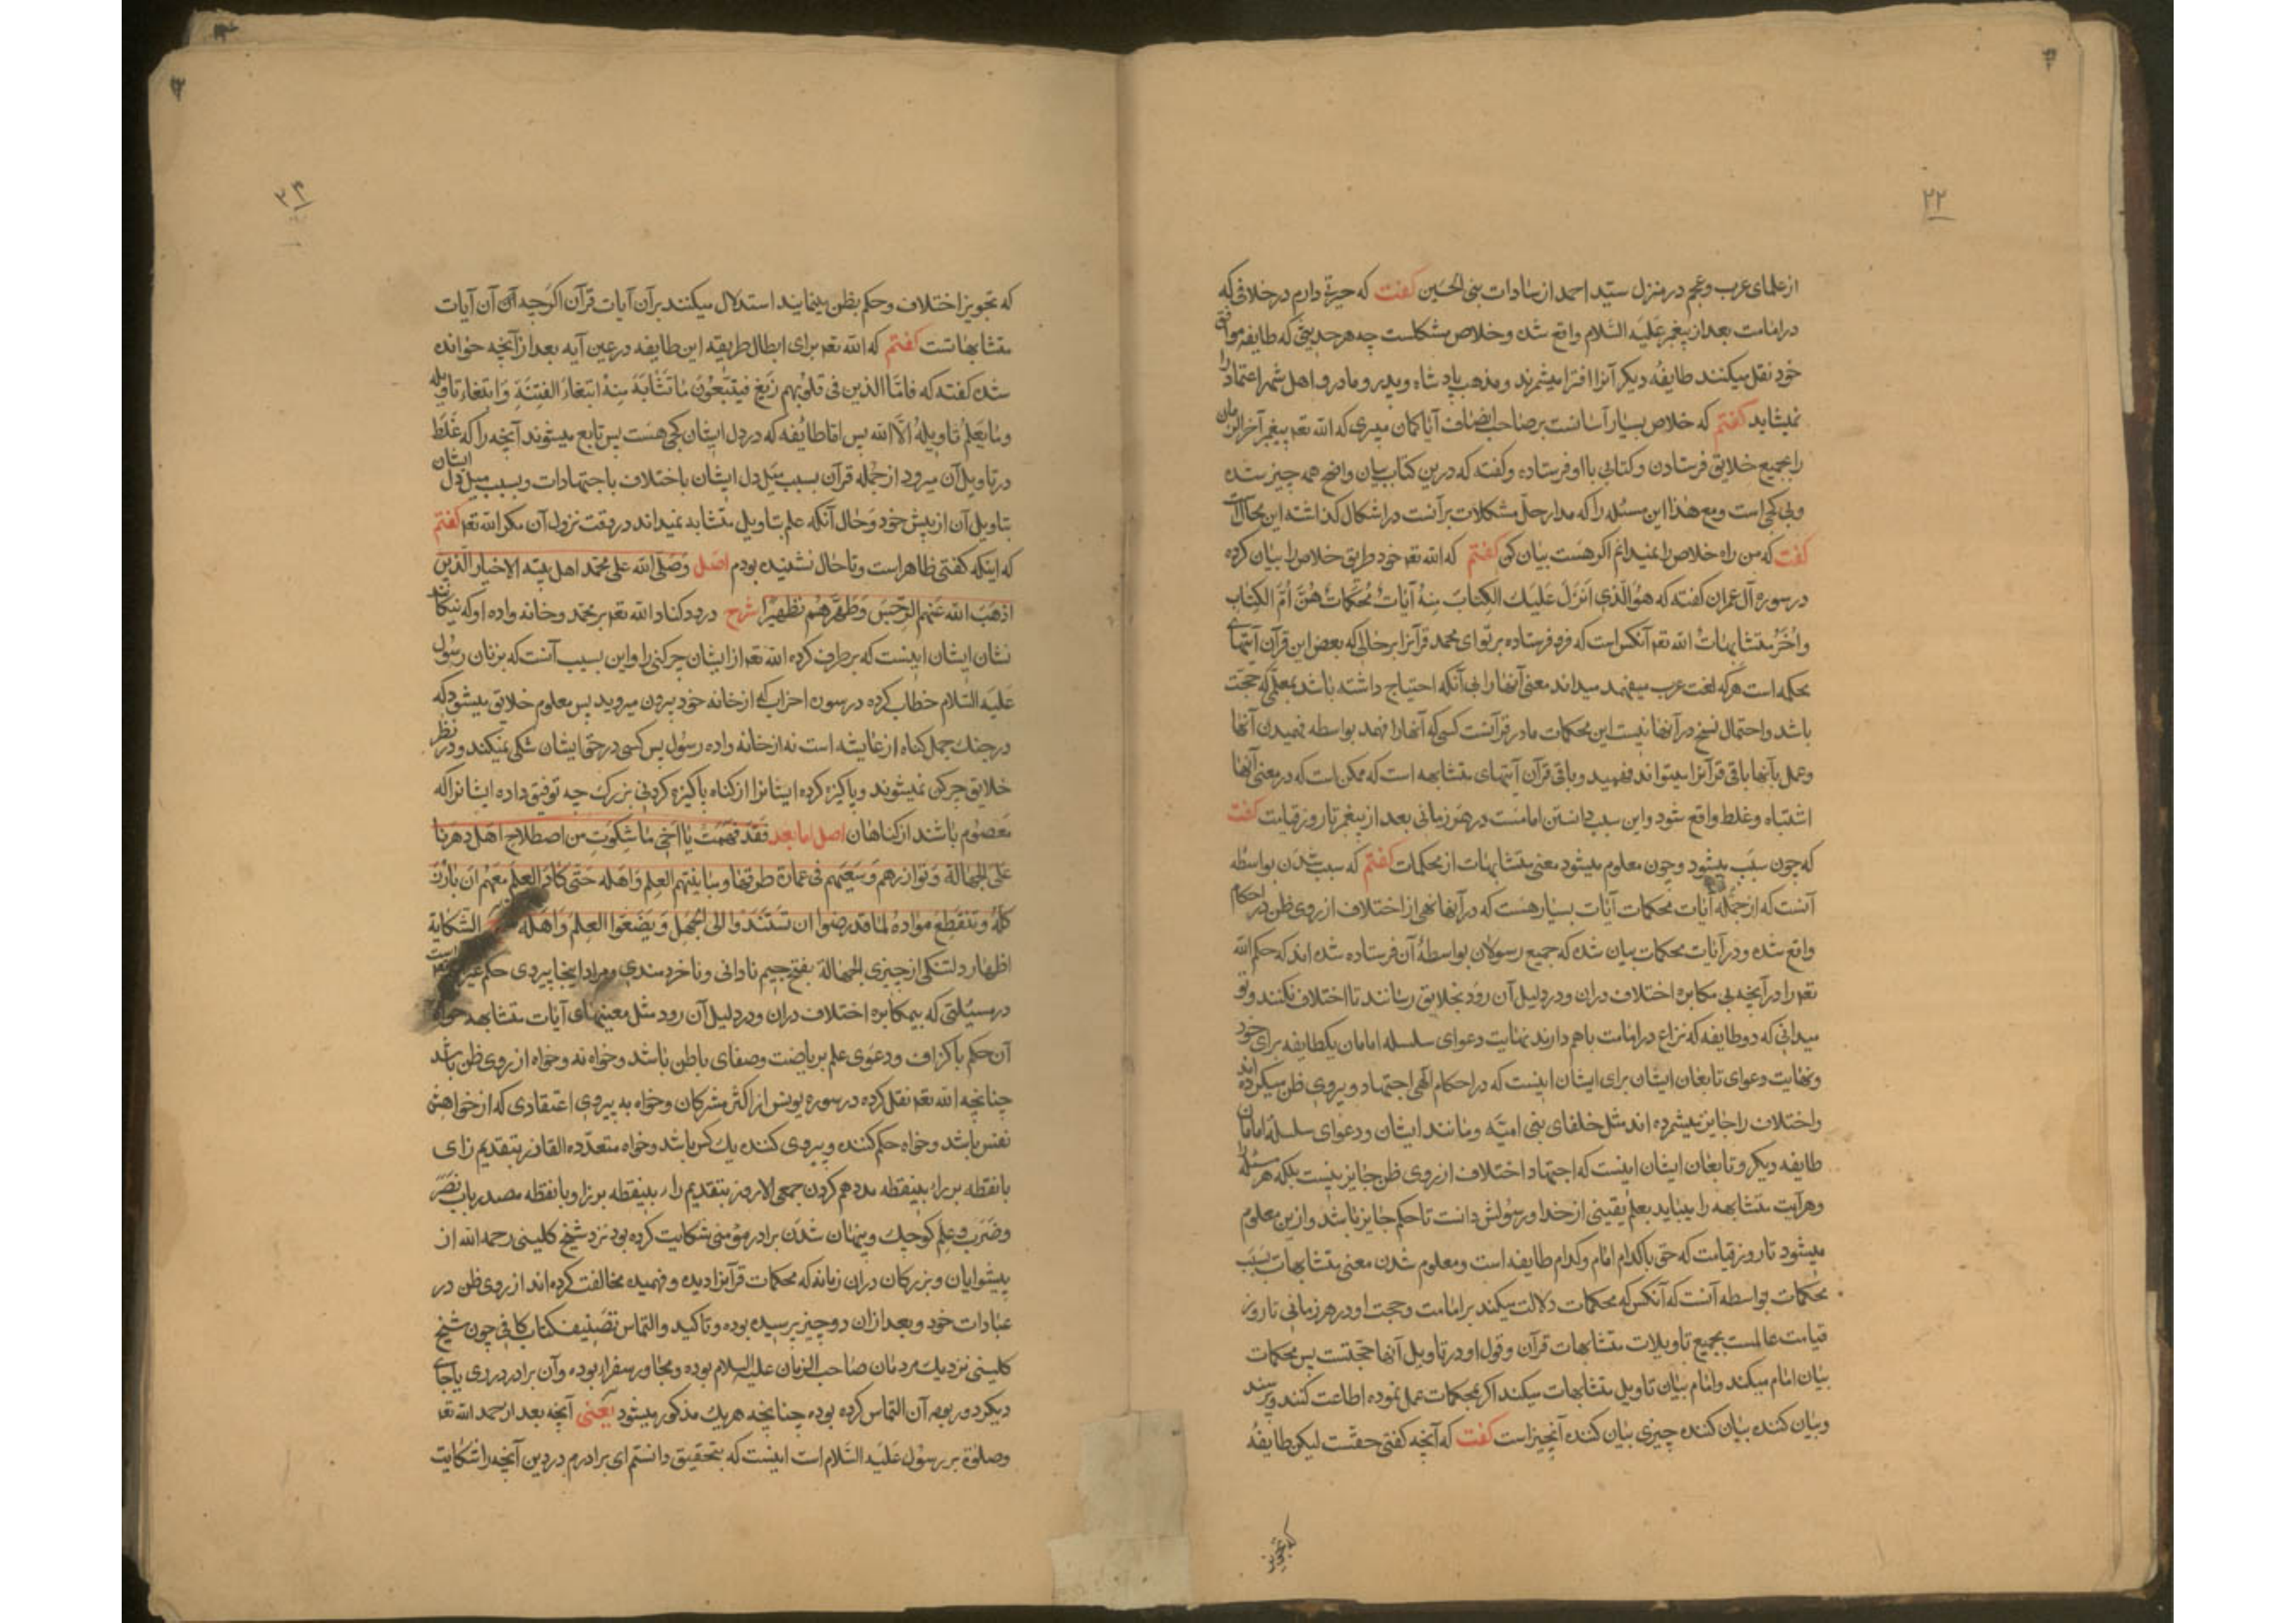 ۲۲
از علمای عرب و عجم در منزل سیّد احمد از سادات بنی الحسین کفت که حیرة دارم در خلافی که
در امامت بعد از پیغمبر علیه السّلام واقع شده و خلاص مشکلست چه هر حدیثی که طایفه موافق
خود نقل میکنند طایفهٔ دیکر آنرا افترا میشمرند و مذهب پادشاه و پدر و مادر و اهل شهر اعتماد را
نمیشاید کفتم که خلاص بسیار آسانست بر صاحب انصاف آیا کمان میبری که الله تعه پیغمبر آخر الزمان
را بجمیع خلایق فرستادن و کتابی با او فرستاده و کفته که درین کتاب بیان واضح همه چیز شده
و بی کجی است و مع هذا این مسئله را که مدار حلّ مشکلات بر آنست در اشکال کذاشته این محالست
کفت که من راه خلاص را نمیدانم اکر هست بیان کن کفتم که الله تعه خود طریق خلاص را بیان کرده
در سوره آل عمران کفته که هُوَ الَّذی اَنْزَلَ عَلَیْكَ الکِتابَ مِنهُ آیاتٌ مُحْکَماتٌ هُنَّ اُمُّ الکِتاب
و اُخَرُ متشابهاتٌ الله تعه آنکس است که فرو فرستاده بر تو ای محمد قرآنرا بر حالی که بعض این قرآن آیتهای
محکمه است هر که لغت عرب میفهمد میداند معنی آنها را بی آنکه احتیاج داشته باشد بمعلّمی که حجّت
باشد و احتمال نسخ در آنها نیست این محکمات مادر قرآنست کسی که آنها را فهمد بواسطه فهمیدن آنها
و عمل بآنها باقی قرآنرا میتواند فهمید و باقی قرآن آیتهای متشابهه است که ممکن است که در معنی آنها
اشتباه و غلط واقع شود و این سبب دانستن امامست در هر زمانی بعد از پیغمبر تا روز قیامت کفت
که چون سبب میشود و چون معلوم میشود معنی متشابهات از محکمات کفتم که سبب شدن بواسطه
آنست که از جمله آیات محکمات آیات بسیار هست که در آنها نهی از اختلاف از روی ظن در احکام
واقع شده و در آیات محکمات بیان شده که جمیع رسولان بواسطهٔ آن فرستاده شده اند که حکم الله
تعه را در آنچه بی مکابره اختلاف دران و در دلیل آن رود بخلایق رسانند تا اختلاف نکنند و تو
میدانی که دو طایفه که نزاع در امامت باهم دارند نهایت دعوای سلسله امامان یکطایفه برای خود
و نهایت دعوای تابعان ایشان برای ایشان اینست که در احکام الهی اجتهاد و پیروی ظن میکرده اند
و اختلاف را جایز میشمرده اند مثل خلفای بنی امیّه و مانند ایشان و دعوای سلسلهٔ امامان
طایفه دیکر و تابعان ایشان اینست که اجتهاد و اختلاف از روی ظن جایز نیست بلکه هر مسئله
و هر آیت متشابهه را میباید بعلم یقینی از خدا و رسولش دانست تا حکم جایز باشد و ازین معلوم
میشود تا روز قیامت که حق با کدام امام و کدام طایفه است و معلوم شدن معنی متشابهات بسبب
محکمات بواسطه آنست که آنکس که محکمات دلالت میکند بر امامت و حجت او در هر زمانی تا روز
قیامت عالمست بجمیع تاویلات متشابهات قرآن و قول او در تاویل آنها حجّتست پس محکمات
بیان امام میکند و امام بیان تاویل متشابهات میکند اکر بمحکمات عمل نموده اطاعت کنند و پرسند
و بیان کننده بیان کننده چیزی بیان کننده آنچیز است کفت که آنچه کفتی حقّست لیکن طایفهٔ
که تجویز
۲۳
که تجویز اختلاف و حکم بظن مینمایند استدلال میکنند بر آن آیات قرآن اکرچه آن آیات
متشابهاتست کفتم که الله تعه برای ابطال طریقه این طایفه در عین آیه بعد از آنچه خوانده
شده کفته که فامّا الّذین فی قلوبهم زَیغ فیتّبعُونَ مَا تَشَابَهَ مِنهُ ابْتغاءَ الفِتنَةِ وَابتغاء تاویله
وما یعلمُ تاویلهُ الّا الله پس امّا طائفه که در دل ایشان کجی هست پس تابع میشوند آنچه را که غَلَط
در تاویل آن میرود از جمله قرآن بسبب میل دل ایشان باختلاف باجتهادات و بسبب میل دل ایشان
بتاویل آن از پیش خود وَ حال آنکه علم بتاویل متشابه نمیداند در وقت نزول آن مکر الله تعه کفتم
که اینکه کفتی ظاهر است و تا حال نشنیده بودم اصل وَصَلَّی الله علی محمّد اهل بیته الاخیار الّذین
اذهَبَ الله عَنهم الرّجسَ وَطَهَّرهُم تطهیرًا شرح درود کناد الله تعه بر محمّد و خانه واده او که نیکانند
نشان ایشان اینست که برطرف کرده الله تعه از ایشان چرکنی را و این بسبب آنست که بزنان رسُول
علیه السّلام خطاب کرده در سوره احزاب که از خانه خود بیرون میروید پس معلوم خلایق میشود که
در جنك جمل کناه از عایشه است نه از خانه واده رسُول پس کسی در حق ایشان شکی نمیکند و در نظر
خلایق چرکن نمیشوند و پاکیزه کرده ایشانرا از کناه پاکیزه کردنی بزرك چه توفیق داده ایشانرا که
معصوم باشند از کناهان اصل اما بعد فَقَد فهمتُ یا اخی ما شکوت من اصطلاح اهل دهرنا
علی الجهالة وَ توازرهم وَ سَعیَهم فی عمارة طرقها و مباینتهم العلم وَ اهله حَتّی کادَ العِلم مَعَهُم اَن یأرز
کلّهُ و تنقطِعَ موادّه لما قد رضوا ان تستندوا الی الجهل وَ یضعوا العِلم وَ اهله الشکایة
اظهار دلتنکی از چیزی الجهالة بفتح جیم نادانی و ناخردمندی و مراد اینجا پیروی حکم غیر
در مسئلتی که بیمکابره اختلاف دران و در دلیل آن رود مثل معینهای آیات متشابهه خواه
آن حکم باکزاف و دعوی علم بریاضت وصفای باطن باشد و خواه نه و خواه از روی ظن باشد
چنانچه الله تعه نقل کرده در سوره یونس از اکثر مشرکان و خواه به پیروی اعتقادی که از خواهش
نفس باشد و خواه حکم کننده و پیروی کننده یك کس باشد و خواه متعدّده التوازر بتقدیم زای
بانقطه بر راء بینقطه مددهم کردن جمعی الارز بتقدیم راء بینقطه بر زاء بانقطه مصدر باب نَصَرَ
و ضَرَبَ وعلم کوچك و پنهان شدن برادر مؤمنی شکایت کرده بود نزد شیخ کلینی رحمه الله از
پیشوایان و بزرکان دران زمانه که محکمات قرآنرا دیده و فهمیده مخالفت کرده اند از روی ظن در
عبادات خود و بعد از ان دو چیز پرسیده بوده و تاکید و التماس تصنیف کتاب کافی چون شیخ
کلینی نزدیك مردمان صاحب الزمان علیه السلام بوده و مجاور سفرا بوده و آن برادر در ری یا جای
دیکر دور بوده آن التماس کرده بوده چنانچه هر یك مذکور میشود یعنی آنچه بعد از حمد الله تعه
وصلوة بر رسُول علیه السّلام است اینست که بتحقیق دانستم ای برادرم در دین آنچه را شکایت